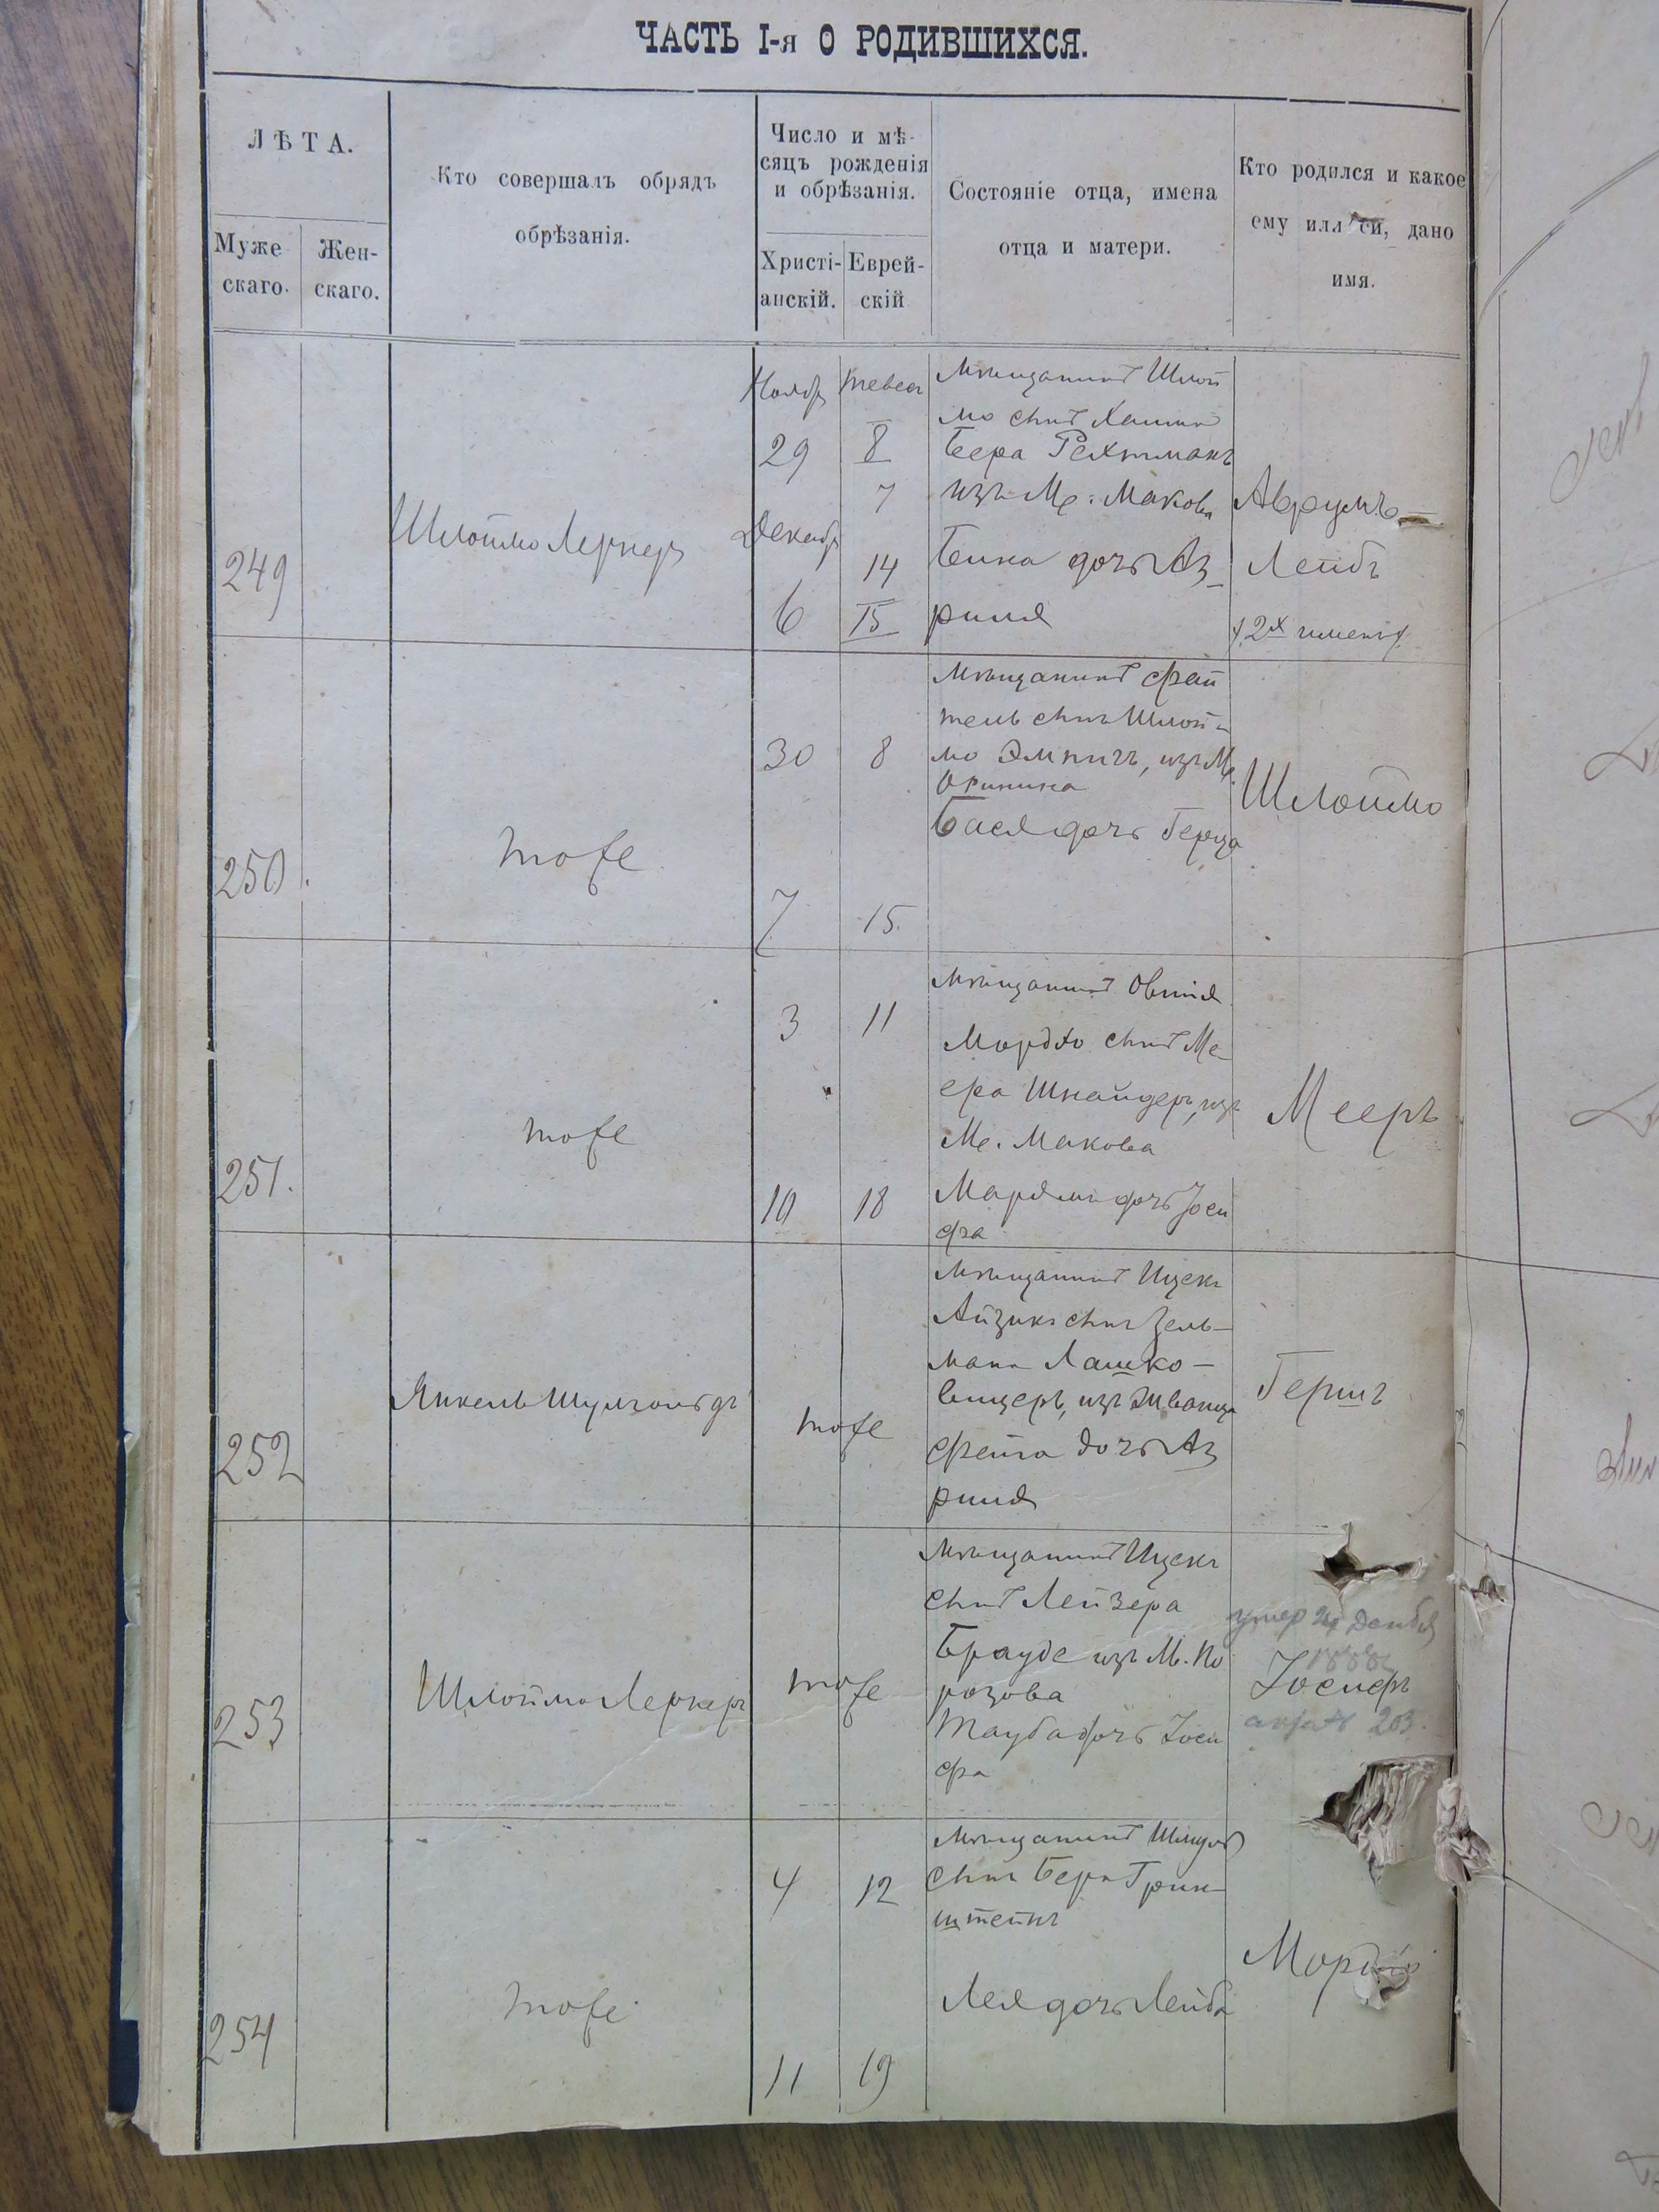 ЧАСТЬ I-я О РОДИВШИХСЯ.
ЛѢТА.
Муже
скаго.
Жен-
скаго.
Кто совершалъ обрядъ
обрѣзанія.
Число и мѣ-
сяцъ рожденія
и обрѣзанія.
Христі-
анскій.
Еврей-
скій
Состояніе отца, имена
отца и матери.
Кто родился и какое
ему или ей, дано
имя.
249
Шлоймо Лернеръ
Ноябр
29
Декабр
6
Тевес
8
7
14
15
Мѣщанинъ Шлой
мо сынъ Хаима
Бера Рехтманъ
изъ М. Макова
Бина дочь Аз-
риля
Аврумъ-
Лейбъ
/2х имень/
250.
тоже
30
7
8
15.
Мѣщанинъ Фай
тель сынъ Шлой-
мо изъ М.
Оринина
Бася дочь Герца
Шлоймо
251.
тоже
3
10
11
18
Мѣщанинъ Овшія
Мордко сынъ Ме-
ера Шнайдеръ, изъ
М. Макова
Марямъ дочь Іоси
фа
Мееръ
252
Янкель Шулгольдъ
тоже
Мѣщанинъ Ицекъ
Айзикъ сынъ Зель-
мана Лашко-
вицеръ, изъ Жванца
Фейга дочь Аз
риля
Гершъ
253
Шлоймо Лернеръ
тоже
Мѣщанинъ Ицекъ
сынъ Лейзера
Брауде изъ М. По
розова
Тауба дочь Іоси
фа
умер 24 Декабря
1888
Іосифъ
актъ 203.
254
тоже
4
11
12
19
Мѣщанинъ Шмуль
сынъ Бера Грин-
штейнъ
Лея дочь Лейба
Мордко